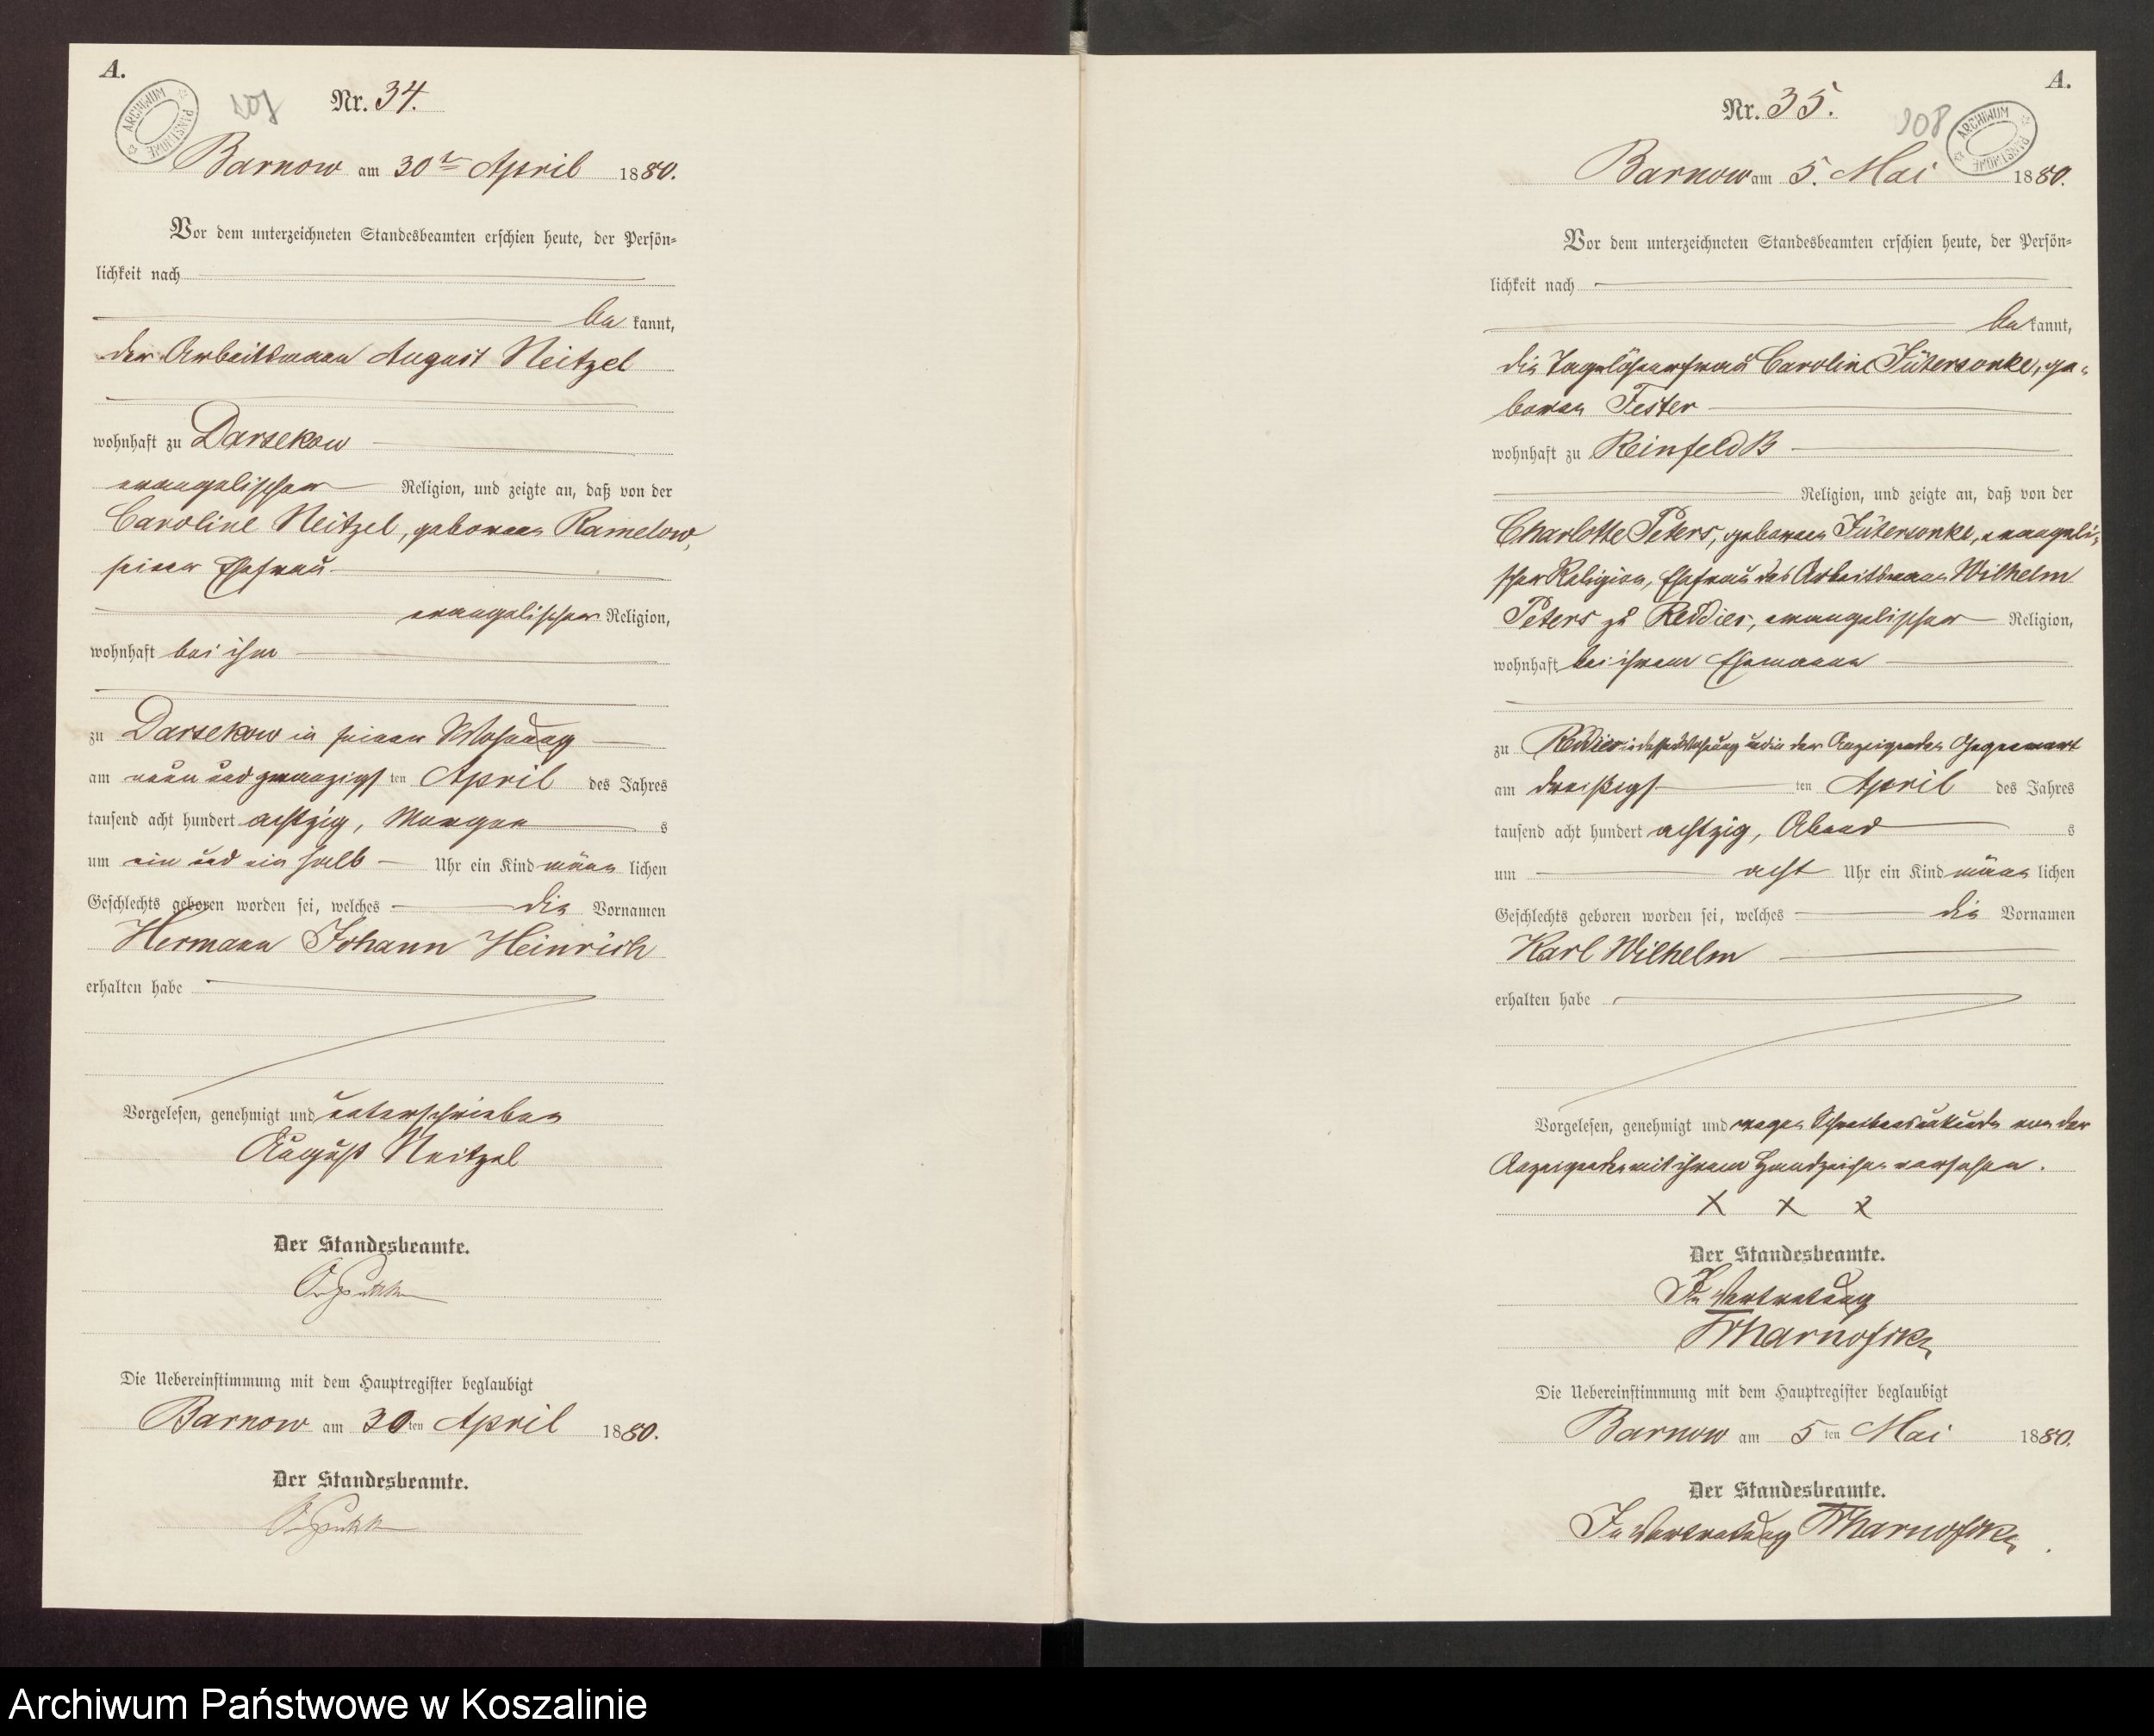 A.
ARCHIWUM PAŃSTWOWE
107
Nr. 34.
Barnow am 30ten April 1880.
Vor dem unterzeichneten Standesbeamten erschien heute, der Persön-
lichkeit nach
bekannt,
der Arbeitsmann August Neitzel
wohnhaft zu Darsekow
evangelischer Religion, und zeigte an, daß von der
Caroline Neitzel, geborenen Ramelow,
seiner Ehefrau
evangelischer Religion,
wohnhaft bei ihm
zu Darsekow in seiner Wohnung
am neun und zwanzigsten April des Jahres
tausend acht hundert achtzig, Morgens
um ein und ein halb Uhr ein Kind männlichen
Geschlechts geboren worden sei, welches die Vornamen
Hermann Johann Heinrich
erhalten habe
Vorgelesen, genehmigt und unterschrieben
August Neitzel
Der Standesbeamte.
Die Uebereinstimmung mit dem Hauptregister beglaubigt
Barnow am 30ten April 1880.
Der Standesbeamte.
A.
108
ARCHIWUM PAŃSTWOWE
Nr. 35.
Barnow am 5. Mai 1880.
Vor dem unterzeichneten Standesbeamten erschien heute, der Persön-
lichkeit nach
bekannt,
die Tagelöhnerfrau Caroline Jütersonke, ge-
boren Fester
wohnhaft zu Reinfeld B
Religion, und zeigte an, daß von der
Charlotte Peters, geborenen Jütersonke, evangeli-
scher Religion, Ehefrau des Arbeitsmanns Wilhelm
Peters zu Reddies, evangelischer Religion,
wohnhaft bei ihrem Ehemanne
zu Reddies in dessen Wohnung und in der Anzeigenden Gegenwart
am dreißigsten April des Jahres
tausend acht hundert achtzig, Abends
um acht Uhr ein Kind männlichen
Geschlechts geboren worden sei, welches die Vornamen
Karl Wilhelm
erhalten habe
Vorgelesen, genehmigt und wegen Schreibensunkunde von der
Anzeigenden mit ihrem Handzeichen versehen.
x x x
Der Standesbeamte.
In Vertretung
Die Uebereinstimmung mit dem Hauptregister beglaubigt
Barnow am 5ten Mai 1880.
Der Standesbeamte.
In Vertretung
Archiwum Państwowe w Koszalinie